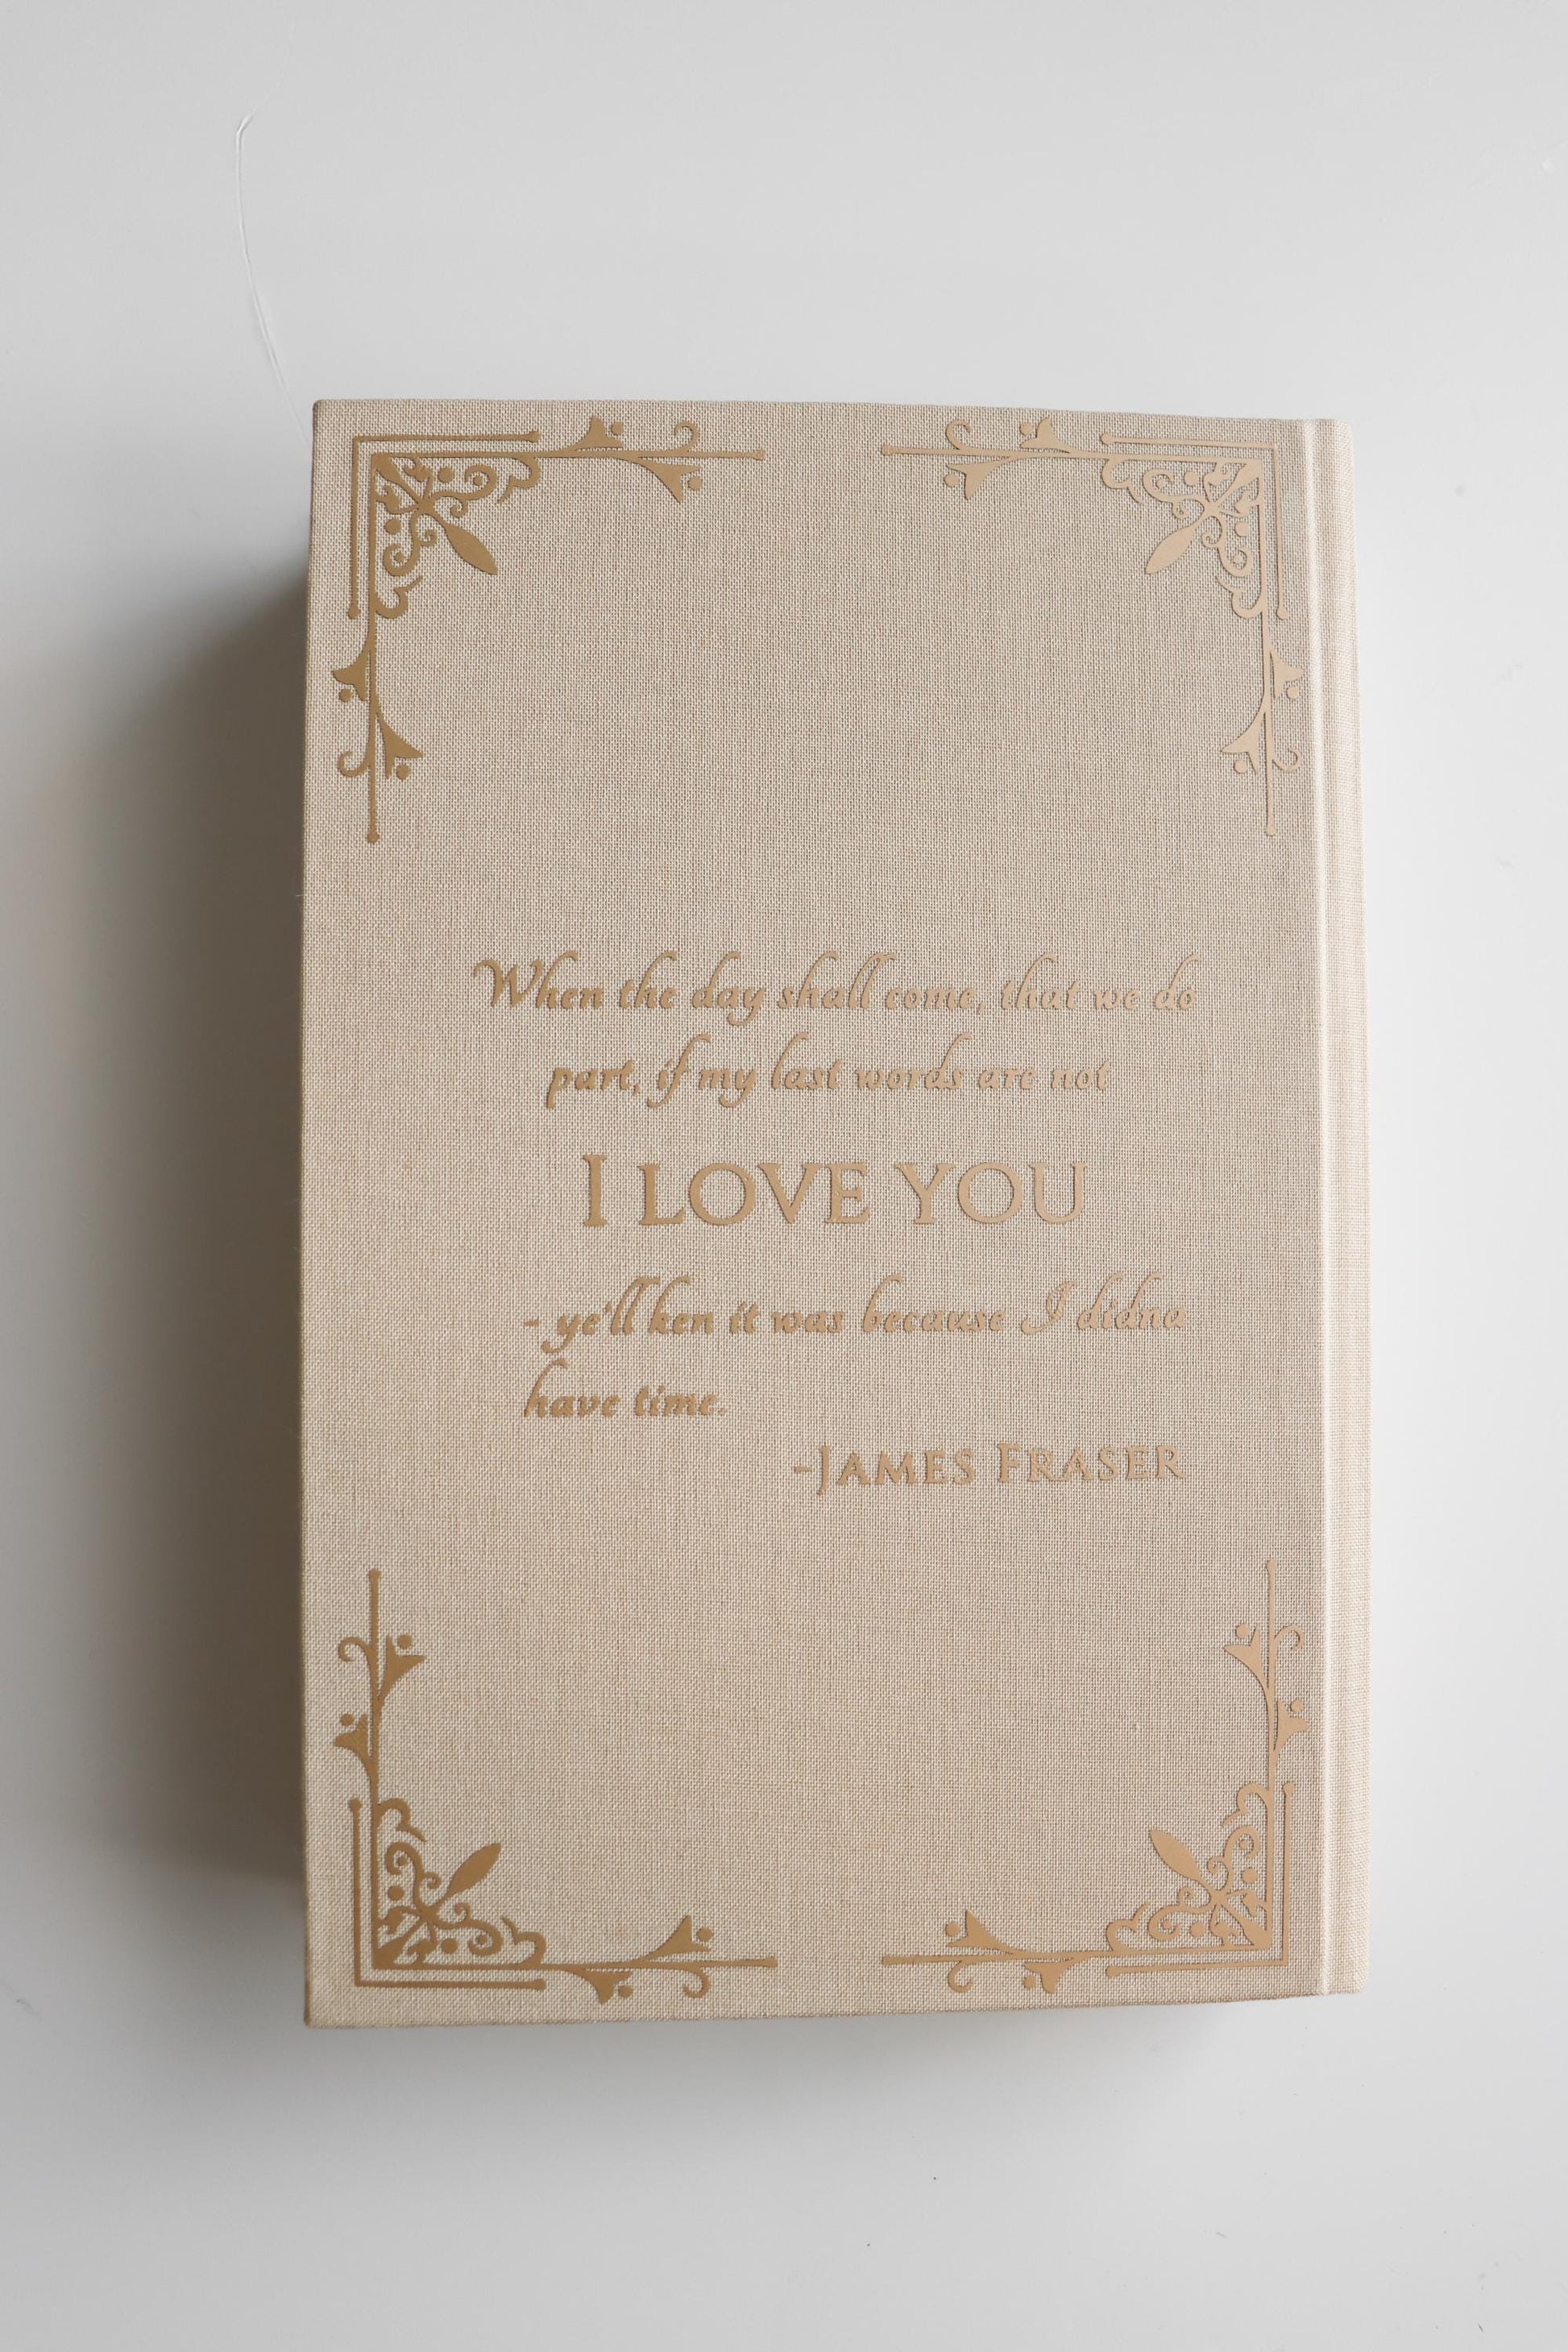 When the day shall come, that we do
part, if my last words are not
I LOVE YOU
- ye'll ken it was because I didna
have time.
-JAMES FRASER